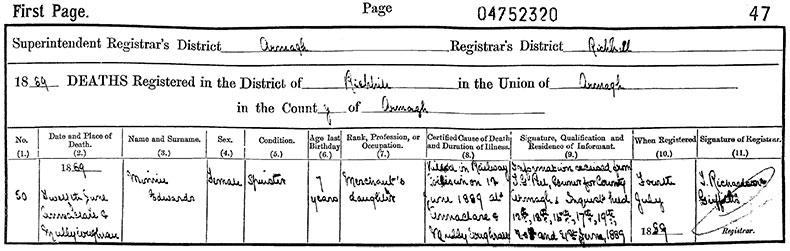 First Page.
Page
04752320
47
Superintendent Registrar's District Armagh Registrar's District Richhill
1889 DEATHS Registered in the District of Richhill in the Union of Armagh
in the County of Armagh
No. (1.)
Date and Place of Death. (2.)
Name and Surname. (3.)
Sex. (4.)
Condition. (5.)
Age last Birthday (6.)
Rank, Profession, or Occupation. (7.)
Certified Cause of Death and Duration of Illness. (8.)
Signature, Qualification and Residence of Informant. (9.)
When Registered (10.)
Signature of Registrar. (11.)
50
1889
Twelfth June
Annaclare &
Mullyloughran
Minnie
Edwards
Female
Spinster
7
years
Merchant's
daughter
Killed in Railway
Collision on 12
June 1889 at
Annaclare &
Mullyloughran
Information received from
T. G. Peel, Coroner for County
Armagh & Inquest held
12th, 13th, 15th, 17th, 19th,
and 21st June, 1889
Fourth
July
1889
T. Richardson
Griffiths
Registrar.